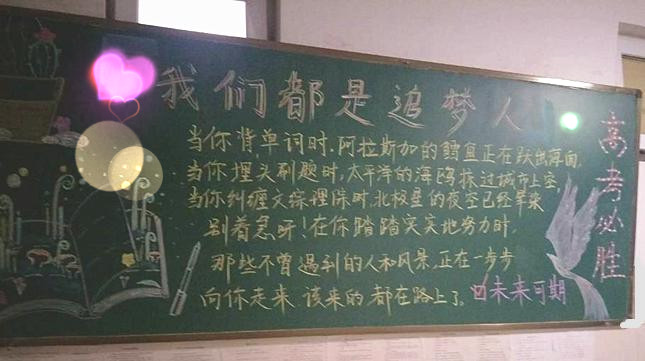 我们都是追梦人
当你背单词时,阿拉斯加的鳕鱼正在跃出海面,
当你埋头刷题时,太平洋的海鸥掠过城市上空,
当你纠缠文综理综时,北极星的夜空已经晕染
别着急呀!在你踏踏实实地努力时,
那些不曾遇到的人和风景,正在一步步
向你走来 该来的都在路上了,
未来可期
高考必胜